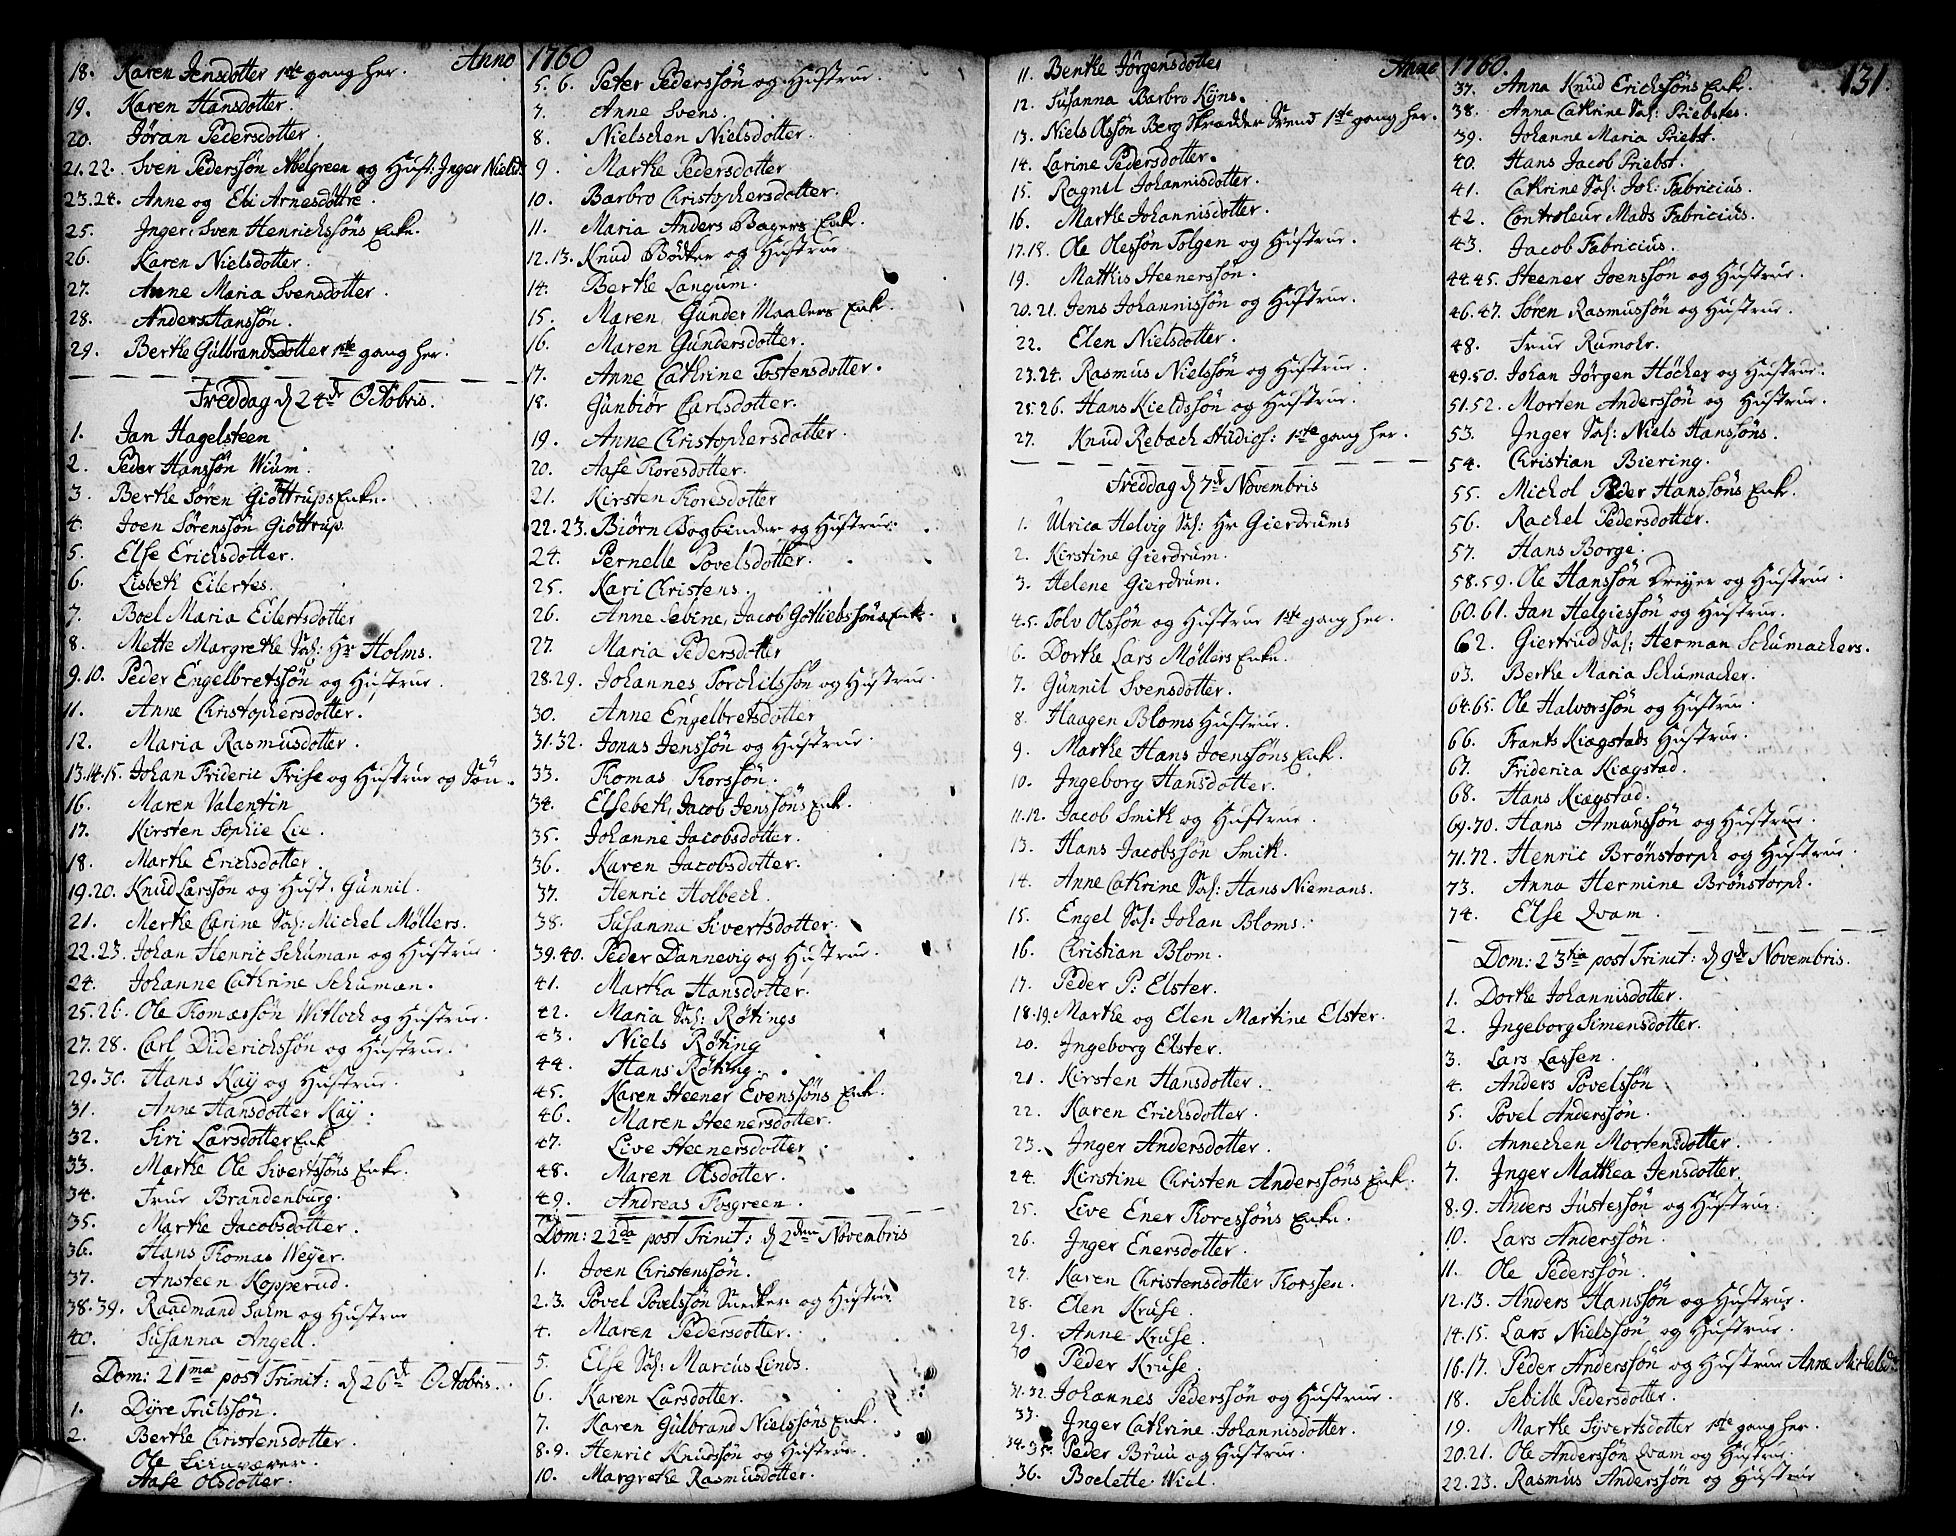 Anno 1760
18. Karen Jensdotter 1ste gang her.
19. Karen Hansdotter.
20. Jöran Pedersdotter.
21.22. Sven Pederssön Abelgreen og Hust: Inger Nielsd:
23.24. Anne og Eli Arnesdöttre.
25. Inger, Sven Henrichssöns Enke.
26. Karen Nielsdotter.
27. Anne Maria Svensdotter.
28. Anders Hanssön.
29. Berthe Gulbrandsdotter 1ste gang her.
Freddag d 24de Octobris.
1. Jan Hagelsteen
2. Peder Hanssön Wium.
3. Berthe Sören Giöttrups Enke.
4. Joen Sörenssön Giöttrup
5. Else Erichsdotter.
6. Lisbeth Eilertes.
7. Boel Maria Eilertsdotter
8. Mette Margrethe Sal: Hr Holms.
9.10. Peder Engelbretssön og Hustrue.
11. Anne Christophersdotter.
12. Maria Rasmusdotter.
13.14.15. Johan Frideric Frise og Hustrue og Sön.
16. Maren Valentin
17. Kirsten Sophie Lie.
18. Marthe Erichsdotter
19.20. Knud Larssön og Hust. Gunnil.
21. Merthe Carine Sal: Michel Möllers.
22.23. Johan Henric Schuman og Hustrue
24. Johanne Cathrine Schuman.
25.26. Ole Thomassön Witloch og Hustrue.
27.28. Carl Diderichssön og Hustrue.
29.30. Hans Kaÿ og Hustrue.
31. Anne Hansdotter Kaÿ.
32. Siri Larsdotter Enk
33. Marthe Ole Sivertssöns Enke.
34. Frue Brandenburg.
35. Marthe Jacobsdotter.
36. Hans Thomas Weÿer.
37. Ansteen Kopperud.
38.39. Raadmand Salm og Hustrue
40. Susanna Angell.
Dom: 21ma post Trinit: d 26de Octobris.
1. Dÿre Trulssön.
2. Berthe Christensdotter.
Ole
Aase Olsdotter.
5.6. Peter Pederssön og Hustrue.
7. Anne Svens.
8. Nielschen Nielsdotter.
9. Marthe Pedersdotter
10. Barbro Christophersdotter.
11. Maria Anders Bagers Enk.
12.13. Knud Bödker og Hustrue
14. Berthe Langum.
15. Maren, Gunder Maalers Enk.
16. Maren Gundersdotter.
17. Anne Cathrine Tostensdotter.
18. Gunbiör Carlsdotter.
19. Anne Christophersdatter.
20. Aase Thoresdotter.
21. Kirsten Thoresdotter
22.23. Biörn Bogbinder og Hustrue.
24. Pernelle Povelsdotter.
25. Kari Christens.
26. Anne Sebine, Jacob Gotliebssöns Enk.
27. Maria Pedersdotter
28.29. Johannes Torchilssön og Hustrue.
30. Anne Engelbretsdotter
31.32. Jonas Jenssön og Hustrue.
33. Thomas Thorssön.
34. Elsebeth, Jacob Jenssöns Enk.
35. Johanne Jacobsdotter.
36. Karen Jacobsdotter.
37. Henric Holbech.
38. Susanna Sivertsdotter.
39.40. Peder Dannevig og Hustrue.
41. Martha Hansdotter.
42. Maria Sal: Rötings
43. Niels Röting
44. Hans Röting.
45. Karen Steener Evenssöns Enk.
46. Maren Steenersdotter.
47. Live Steenersdotter
48. Maren Olsdotter.
49. Andreas Fosgreen.
Dom: 22da post Trinit: d 2den Novembris
1. Joen Christenssön.
2.3. Povel Povelssön Snedker og Hustrue
4. Maren Pedersdotter.
5. Else Sal: Marcus Linds.
6. Karen Larsdotter.
7. Karen Gulbrand Nielssöns Enk.
8.9. Henric Knudssön og Hustrue
10. Margrethe Rasmusdotter.
Anno 1760.
131.
11. Benthe Jörgensdotter
12. Susanna Barbro Kÿns.
13. Niels Olssön Berg Skrædder Svend 1ste gang her.
14. Larine Pedersdotter.
15. Ragnil Johannisdotter.
16. Marthe Johannisdotter.
17.18. Ole Olessön Tolgen og Hustrue.
19. Mathis Steenerssön.
20.21. Jens Johannissön og Hustrue.
22. Elen Nielsdotter.
23.24. Rasmus Nielssön og Hustrue.
25.26. Hans Kieldssön og Hustrue.
27. Knud Rebach Studios: 1ste gang her.
Freddag d 7de Novembris
1. Ulrica Helvig Sal: Hr Gierdrums
2. Kirstine Gierdrum.
3. Helene Gierdrum.
4.5. Tolv Olssön og Hustrue 1ste gang her.
6. Dorthe Lars Möllers Enke.
7. Gunnil Svensdotter.
8. Haagen Bloms Hustrue.
9. Marthe Hans Joenssöns Enk.
10. Ingeborg Hansdotter.
11.12. Jacob Smith og Hustrue.
13. Hans Jacobssön Smith.
14. Anne Cathrine Sal: Hans Niemans.
15. Engel Sal: Johan Bloms:
16. Christian Blom.
17. Peder P: Elster.
18.19. Marthe og Elen Martine Elster.
20. Ingeborg Elster.
21. Kirsten Hansdotter.
22. Karen Erichsdotter.
23. Inger Andersdotter.
24. Kirstine Christen Anderssöns Enk.
25. Live Ener Thoressöns Enke.
26. Inger Enersdotter.
27. Karen Christensdotter Thorssen.
28. Elen Kruse.
29. Anne Kruse.
30 Peder Kruse.
31.32. Johannes Pederssön og Hustrue.
33. Inger Cathrine Johannisdotter.
34.35. Peder Bruu og Hustrue.
36. Boelette Wiel.
37. Anna Knud Erichssöns Enk.
38. Anna Cathrine Sal: Priebstes.
39. Johanne Maria Priebst.
40. Hans Jacob Priebst.
41. Cathrine Sal: Joh: Fabricius.
42. Controleur Mads Fabricius.
43. Jacob Fabricius.
44.45. Steener Joenssön og Hustrue.
46.47. Sören Rasmussön og Hustrue.
48. Frue Rumohr.
49.50. Johan Jörgen Höcker og Hustrue.
51.52. Morten Anderssön og Hustrue.
53. Inger Sal: Niels Hanssöns.
54. Christian Biering.
55. Michol Peder Hanssöns Enk.
56. Rachel Pedersdotter.
57. Hans Borge.
58.59. Ole Hanssön Dreÿer og Hustrue.
60.61. Jan Helgiessön og Hustrue.
62. Giertrud Sal: Herman Schumachers.
63. Berthe Maria Schumacher.
64.65. Ole Halvorssön og Hustrue
66. Frants Kiægstads Hustrue.
67. Friderica Kiægstad.
68. Hans Kiægstad.
69.70. Hans Amunssön og Hustrue.
71.72. Henric Brönstorph og Hustrue
73. Anna Hermine Brönstorph.
74. Else Qvam.
Dom: 23tia post Trinit: d 9de Novembris.
1. Dorthe Johannisdotter.
2. Ingeborg Simensdotter.
3. Lars Lassen.
4. Anders Povelssön
5. Povel Anderssön.
6. Annechen Mortensdotter.
7. Inger Mathea Jensdotter.
8.9. Anders Justessön og Hustrue.
10. Lars Anderssön.
11. Ole Pederssön.
12.13. Anders Hanssön og Hustrue.
14.15. Lars Nielssön og Hustrue.
16.17. Peder Anderssön og Hustrue Anne Michelsd:
18. Sebille Pedersdotter.
19. Marthe Sÿvertsdotter 1ste gang her.
20.21. Ole Anderssön Qvam og Hustrue.
22.23. Rasmus Anderssön og Hustrue